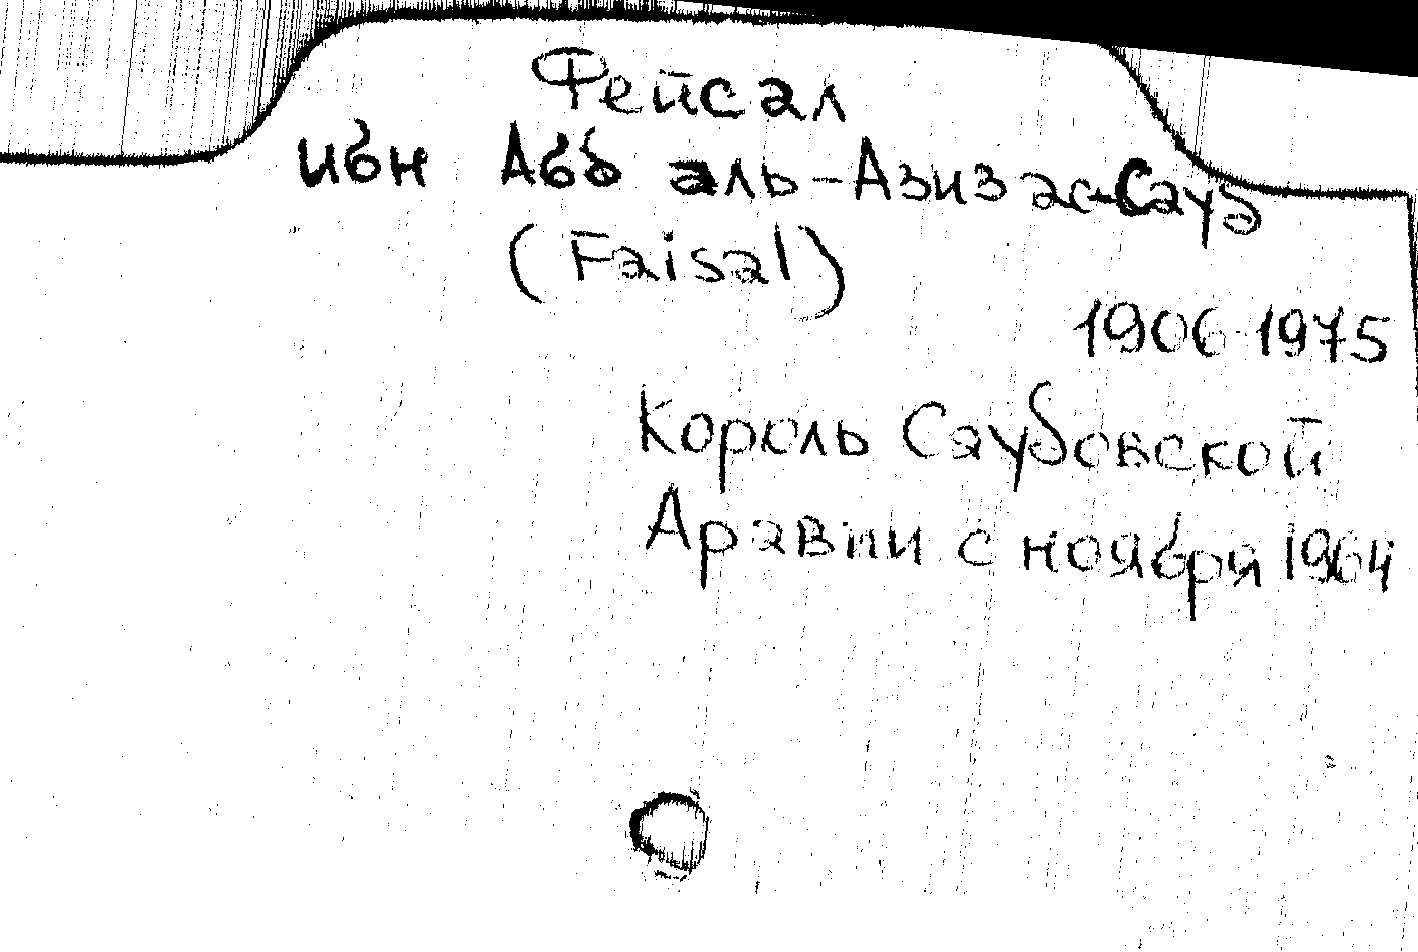 Фейсал
ибн Абд аль-Азиз ас-Сауд
(Faisal)
1906-1975
Король Саудовской
Аравии с ноября 1964